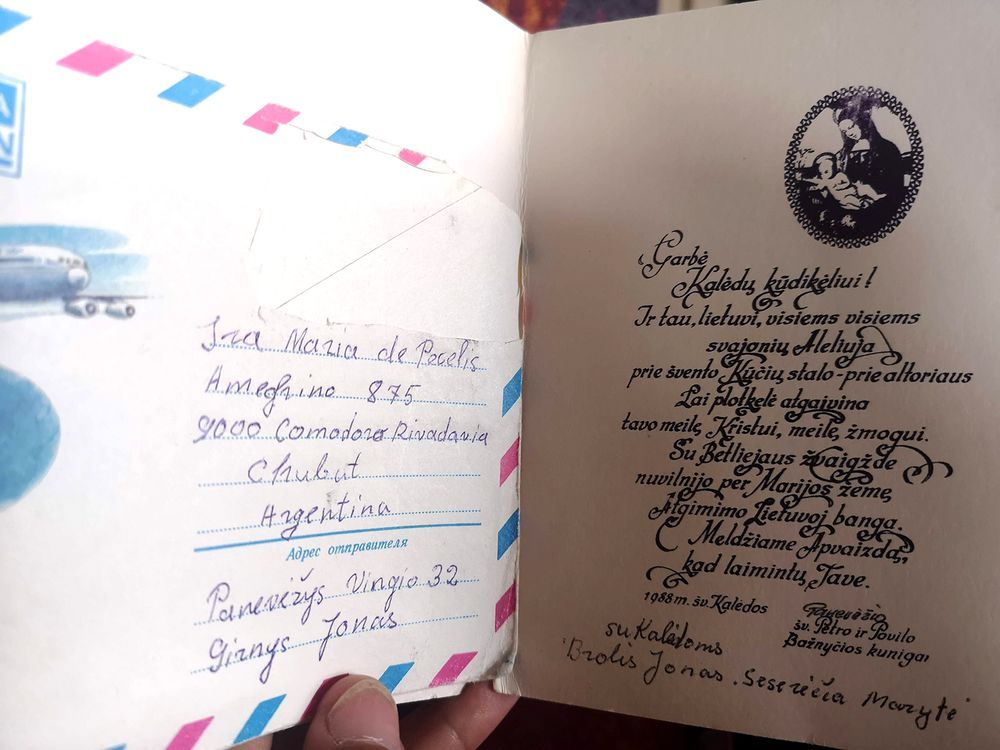 Sra Maria de Pecelis
Ameghino 875
9000 Comodoro Rivadavia
Chubut
Argentina
Адрес отправителя
Panevėžys Vingio 32
Girnys Jonas
Garbė
Kalėdų kūdikėliui!
Ir tau, lietuvi, visiems visiems
svajonių Aleliuja
prie švento Kūčių stalo-prie altoriaus
Lai plotkelė atgaivina
tavo meilę Kristui, meilę žmogui.
Su Betliejaus žvaigžde
nuvilnijo per Marijos žemę
Atgimimo Lietuvoj banga.
Meldžiame Apvaizdą,
kad laimintų Tave.
1988m. šv. Kalėdos
Panevėžio
šv. Petro ir Povilo
Bažnyčios kunigai
su Kalėdoms
Brolis Jonas. Seserėčia Marytė